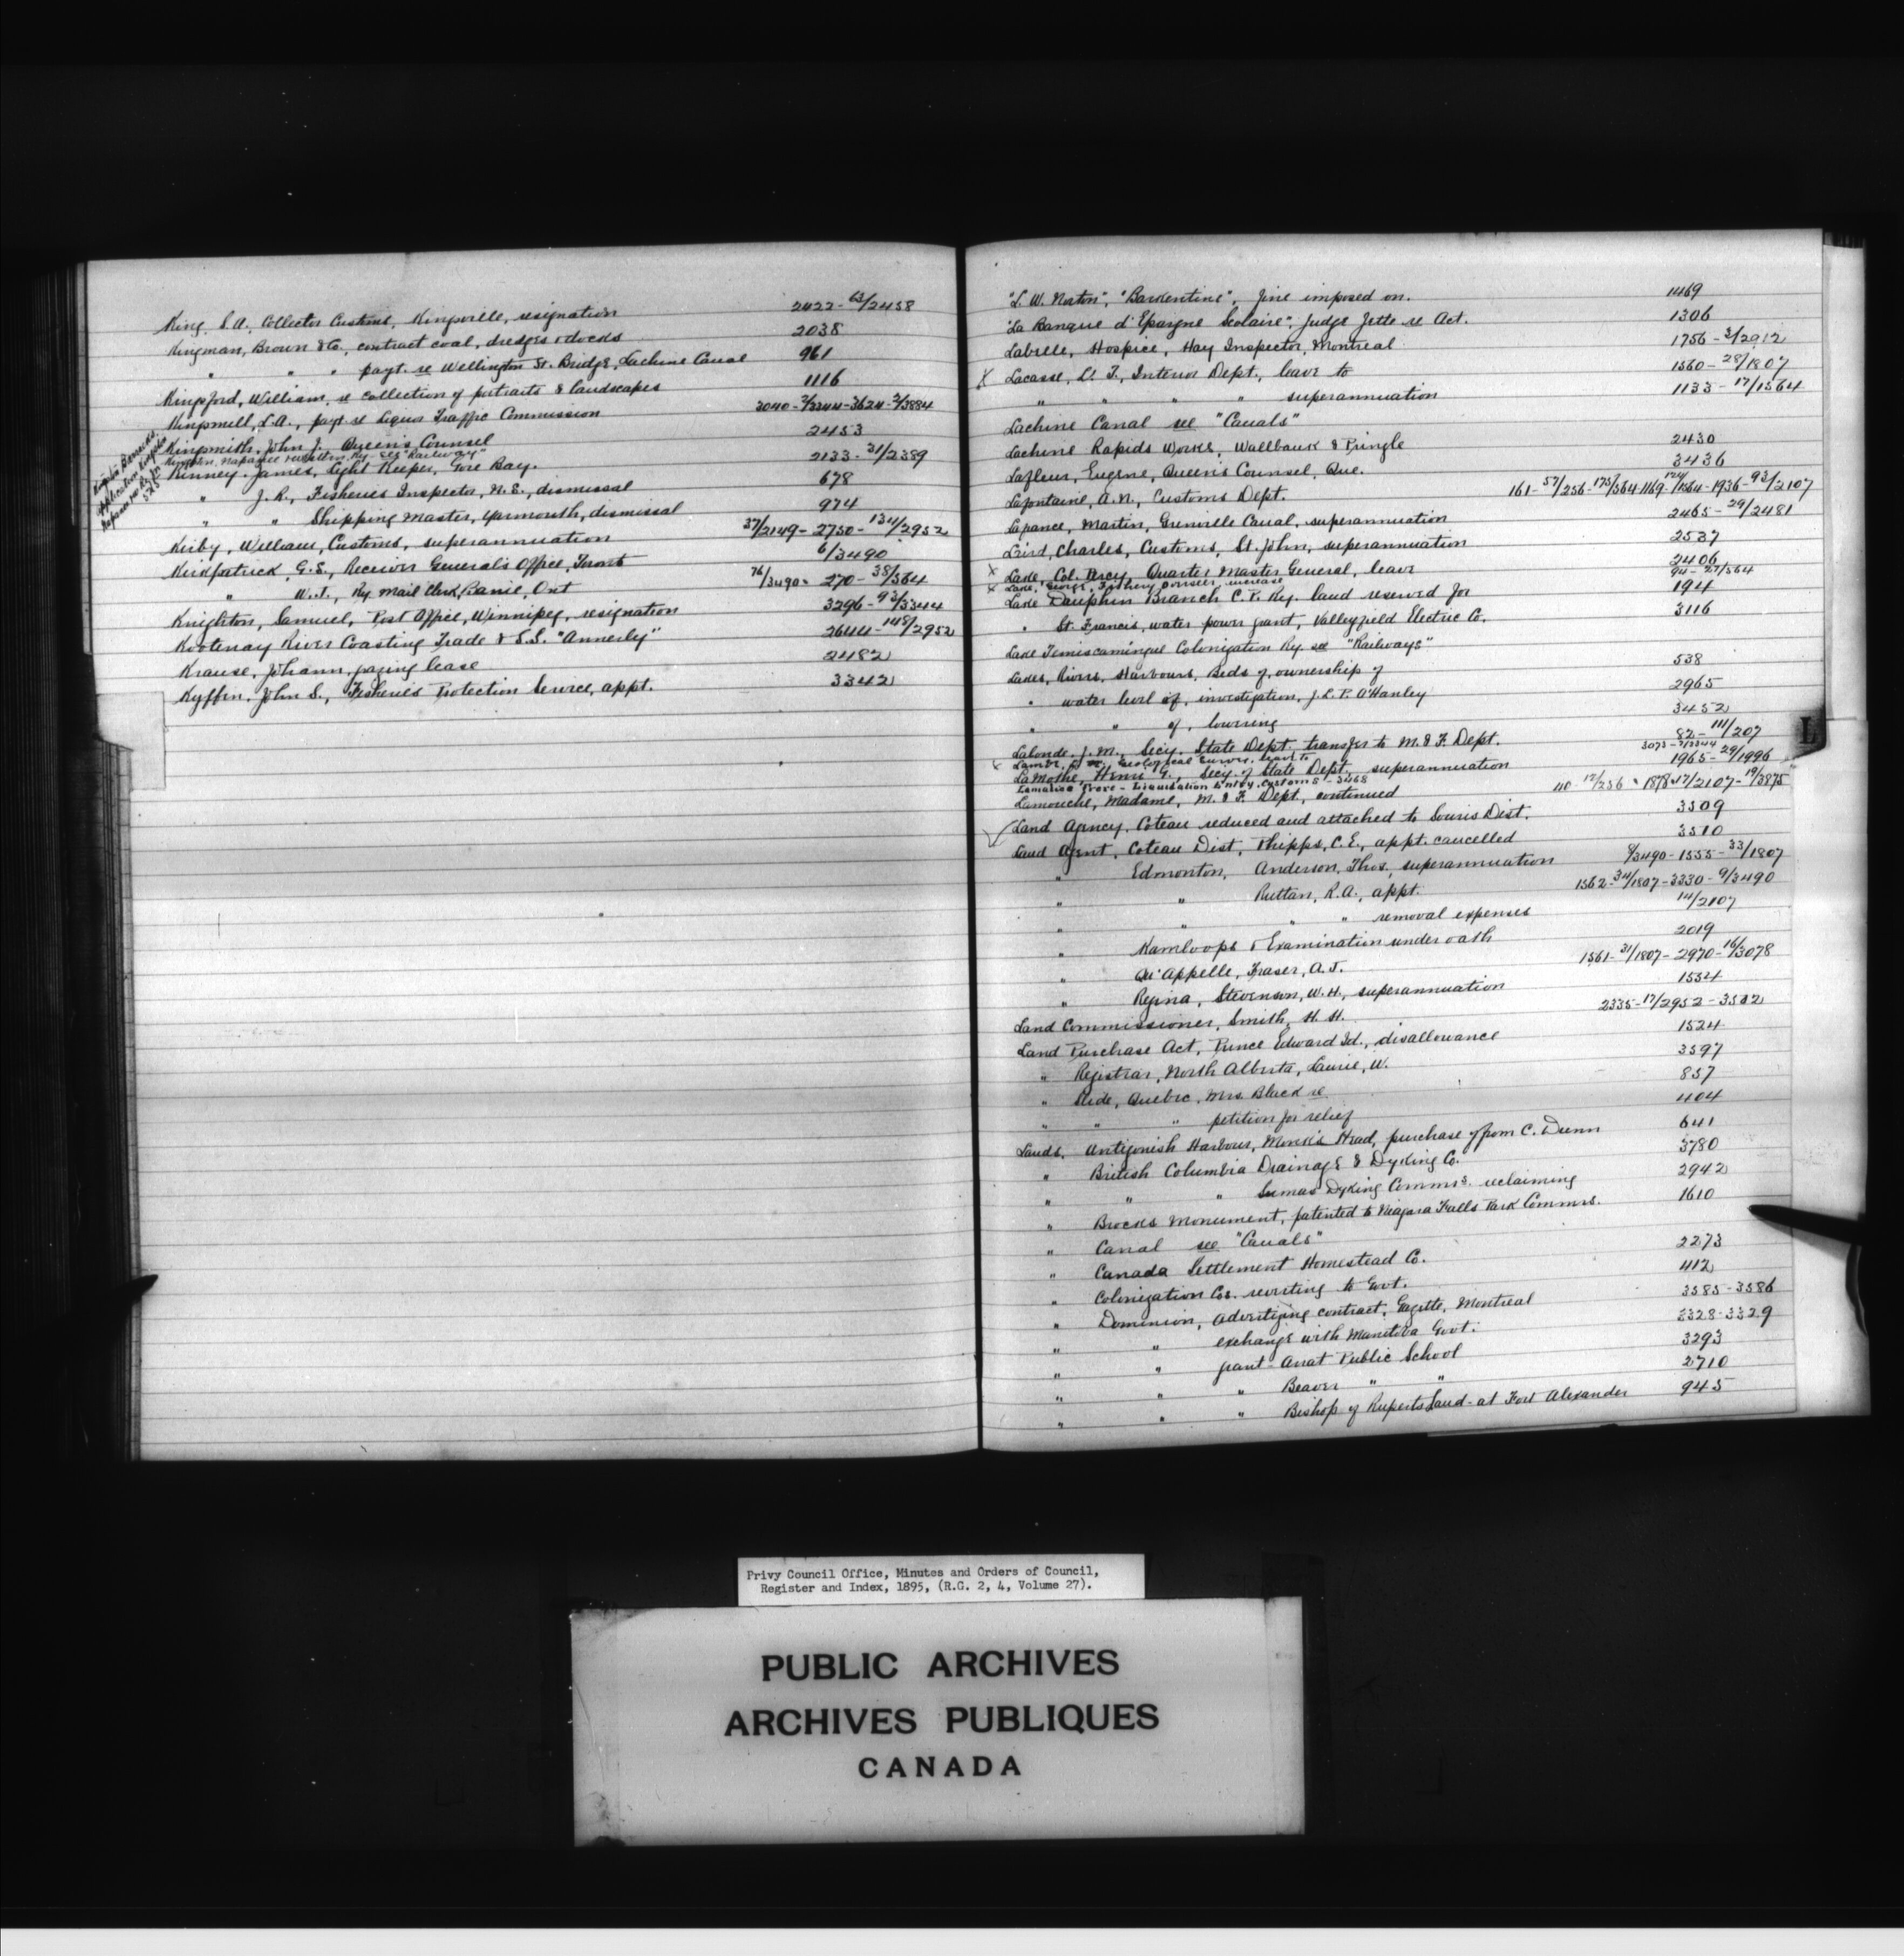 King, S.A., Collector Customs, Kingsville, resignation 2422-63/2458
Kingman, Brown & Co., contract coal, dredges & docks 2038
" " " payt. re Wellington St. Bridge, Lachine Canal 961
Kingsford, William, re collection of portraits & landscapes 1116
Kingsmill, L.A., payt re Liquor Traffic Commission 3040-2/3244-3624-2/3884
Kingsmith, John J. Queen's Counsel 2453
Kingston, Napanee & Western Ry. see "Railways"
Kingston Barracks,
application
525
Kinney, James, Light Keeper, Gore Bay. 2133-31/2389
" J.R., Fisheries Inspector, N.S., dismissal 678
" " Shipping Master, Yarmouth, dismissal 974
Kirby, William, Customs, superannuation 37/2149-2750-134/2952
Kirkpatrick, G.S., Receiver General's Office, Toronto 6/3490
" W.J., Ry. Mail Clerk, Barrie, Ont 76/3490-270-38/564
Knighton, Samuel, Post Office, Winnipeg, resignation 3296-93/3344
Kootenay River Coasting Trade & S.S. "Annerly" 2644-148/2952
Krause, Johann, grazing lease 2482
Kyffin, John S., Fisheries Protection Service, appt. 3342
"L.W. Norton", "Barkentine", fine imposed on. 1469
"La Banque d'Epargne Scolaire", Judge Jette re Act. 1306
Labelle, Hospice, Hay Inspector, Montreal 1756-3/2912
X Lacasse, L. T., Interior Dept., leave to 1560-28/1807
" " " " superannuation 1133-17/1564
Lachine Canal see "Canals"
Lachine Rapids Works, Wallbank & Pringle 2430
Lafleur, Eugene, Queen's Counsel, Que. 3436
Lafontaine, A.N., Customs Dept. 161-57/256-175/564-1169-124/1564-1936-93/2107
Lapance, Martin, Grenville Canal, superannuation 2465-29/2481
Laird, Charles, Customs, St. John, superannuation 2537
X Lake, Col. Percy, Quarter Master General, leave 2406
X Lake, George, Fishery Overseer, increase 94-27/564
Lake Dauphin Branch C.P. Ry. land reserved for 194
" St. Francis, water power grant, Valleyfield Electric Co. 3116
Lake Temiscamingue Colonization Ry. see "Railways"
Lakes, Rivers, Harbours, Beds of, ownership of 538
" water level of, investigation, J.L.P. O'Hanley 2965
" " of, lowering 3452
Lalonde, J.M., Secy. State Dept. transfer to M. & F. Dept. 82-111/207
X Lambe, Geological Survey, leave to
LaMothe, Henri G., Secy. of State Dept. superannuation 1965-29/1996
Liquidation Entry, Customs - 3468
Lamouche, Madame, M. & F. Dept., continued 110-12/256-1878-17/2107-19/3875
Land Agency, Coteau reduced and attached to Souris Dist. 3509
Land Agent, Coteau Dist., Phipps, C.E., appt. cancelled 3510
" Edmonton, Anderson, Thos., superannuation 8/3490-1555-33/1807
" " Ruttan, R.A., appt. 1562-34/1807-3330-9/3490
" " " " removal expenses 14/2107
" Kamloops & Examination under oath 2019
" Qu'Appelle, Fraser, A.J. 1561-31/1807-2970-16/3078
" Regina, Stevenson, W.H., superannuation 1554
Land Commissioner, Smith, H.H. 2335-17/2952-3582
Land Purchase Act, Prince Edward Id., disallowance 1524
" Registrar, North Alberta, Laurie, W. 3597
" Slide, Quebec, Mrs. Black re 857
" " " petition for relief 404
Lands, Antigonish Harbour, Monk's Head, purchase of from C. Dunn 641
" British Columbia Drainage & Dyking Co. 3780
" " " Sumas Dyking Commrs. reclaiming 2942
" Brocks Monument, patented to Niagara Falls Park Commrs. 1610
" Canal see "Canals"
" Canada Settlement Homestead Co. 2273
" Colonization Cos. reverting to Govt. 412
" Dominion, advertizing contract, Gazette, Montreal 3585-3586
" " exchange with Manitoba Govt. 3328-3329
" " grant Arrat Public School 3293
" " " Beaver " " 2710
" " " Bishop of Ruperts Land - at Fort Alexander 945
L
Privy Council Office, Minutes and Orders of Council,
Register and Index, 1895, (R.G. 2, 4, Volume 27).
PUBLIC ARCHIVES
ARCHIVES PUBLIQUES
CANADA